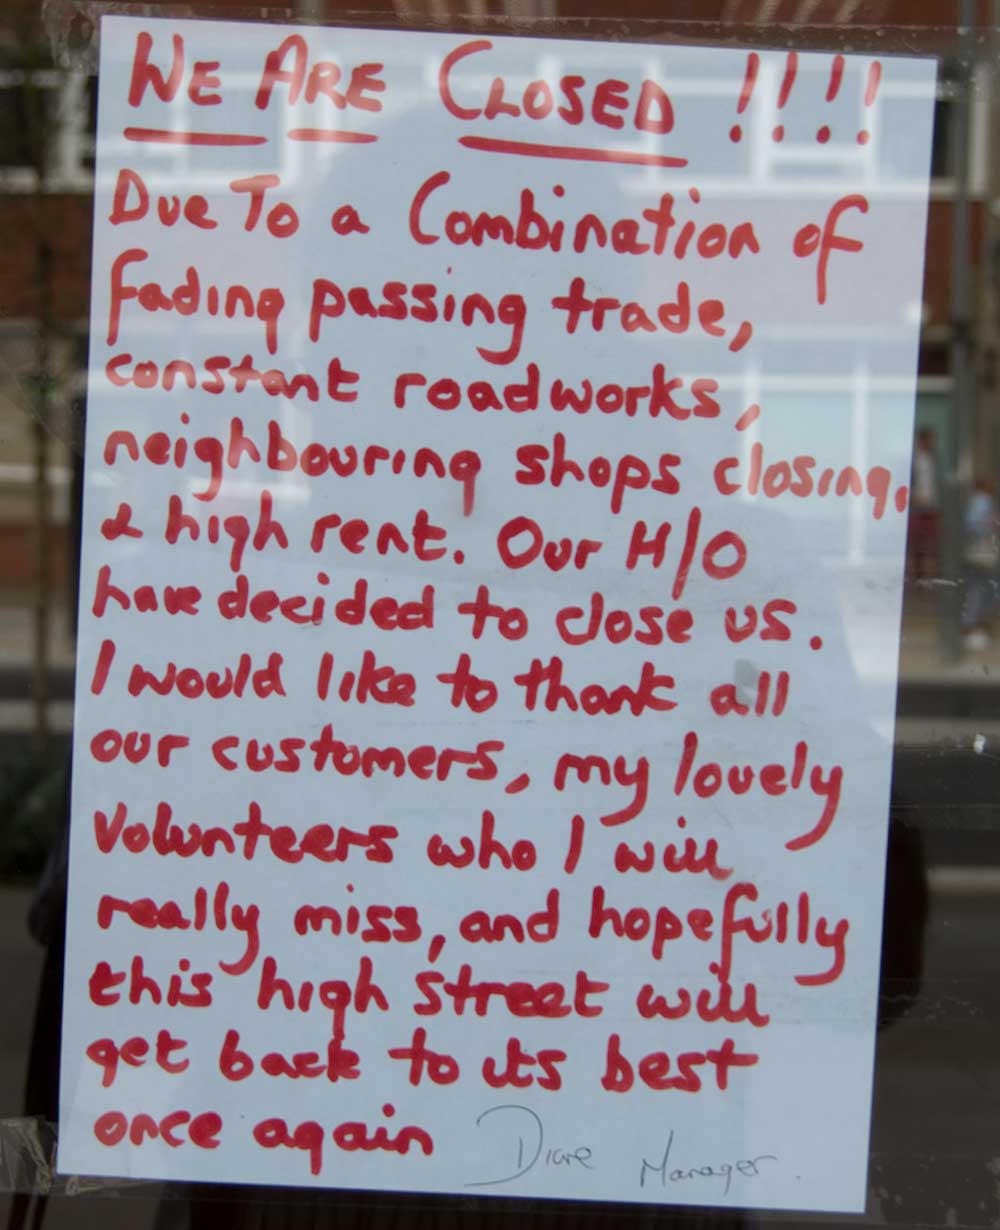 WE ARE CLOSED !!!!
Due To a Combination of
fading passing trade,
constant roadworks,
neighbouring shops closing,
& high rent. Our H/O
have decided to close us.
I would like to thank all
our customers, my lovely
Volunteers who I will
really miss, and hopefully
this high street will
get back to its best
once again Diane Manager.